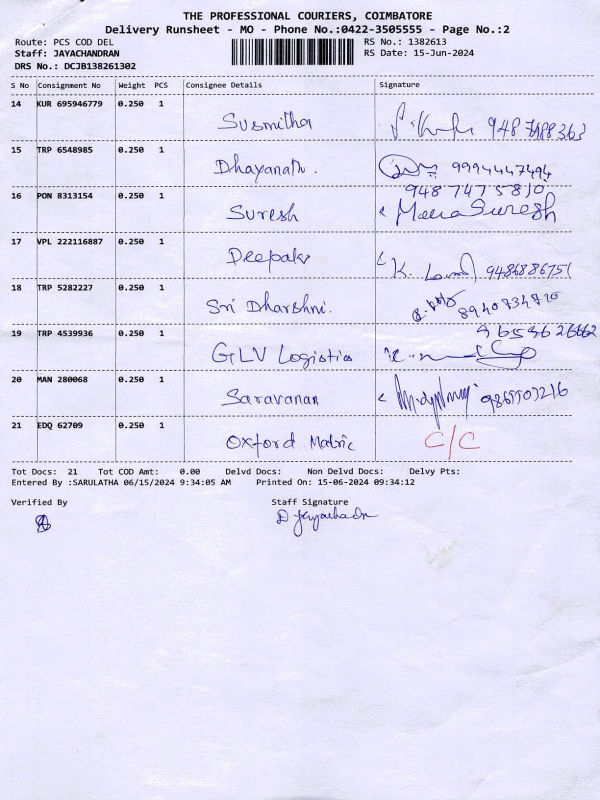 THE PROFESSIONAL COURIERS, COIMBATORE
Delivery Runsheet - MO - Phone No.:0422-3505555 - Page No.:2
Route: PCS COD DEL RS No.: 1382613
Staff: JAYACHANDRAN RS Date: 15-Jun-2024
DRS No.: DCJB138261302
S No Consignment No Weight PCS Consignee Details Signature
14 KUR 695946779 0.250 1
Susmitha
15 TRP 6548985 0.250 1
Dhayanath. 9994447494
16 PON 8313154 0.250 1 9487475810
Suresh Suresh
17 VPL 222116887 0.250 1
Deepak K. 9486886751
18 TRP 5282227 0.250 1
Sri Dharshni. 8940734710
19 TRP 4539936 0.250 1
GLV Logistics
20 MAN 280068 0.250 1
Saravanan
21 EDQ 62709 0.250 1
Oxford Matric C/C
Tot Docs: 21 Tot COD Amt: 0.00 Delvd Docs: Non Delvd Docs: Delvy Pts:
Entered By :SARULATHA 06/15/2024 9:34:05 AM Printed On: 15-06-2024 09:34:12
Verified By Staff Signature